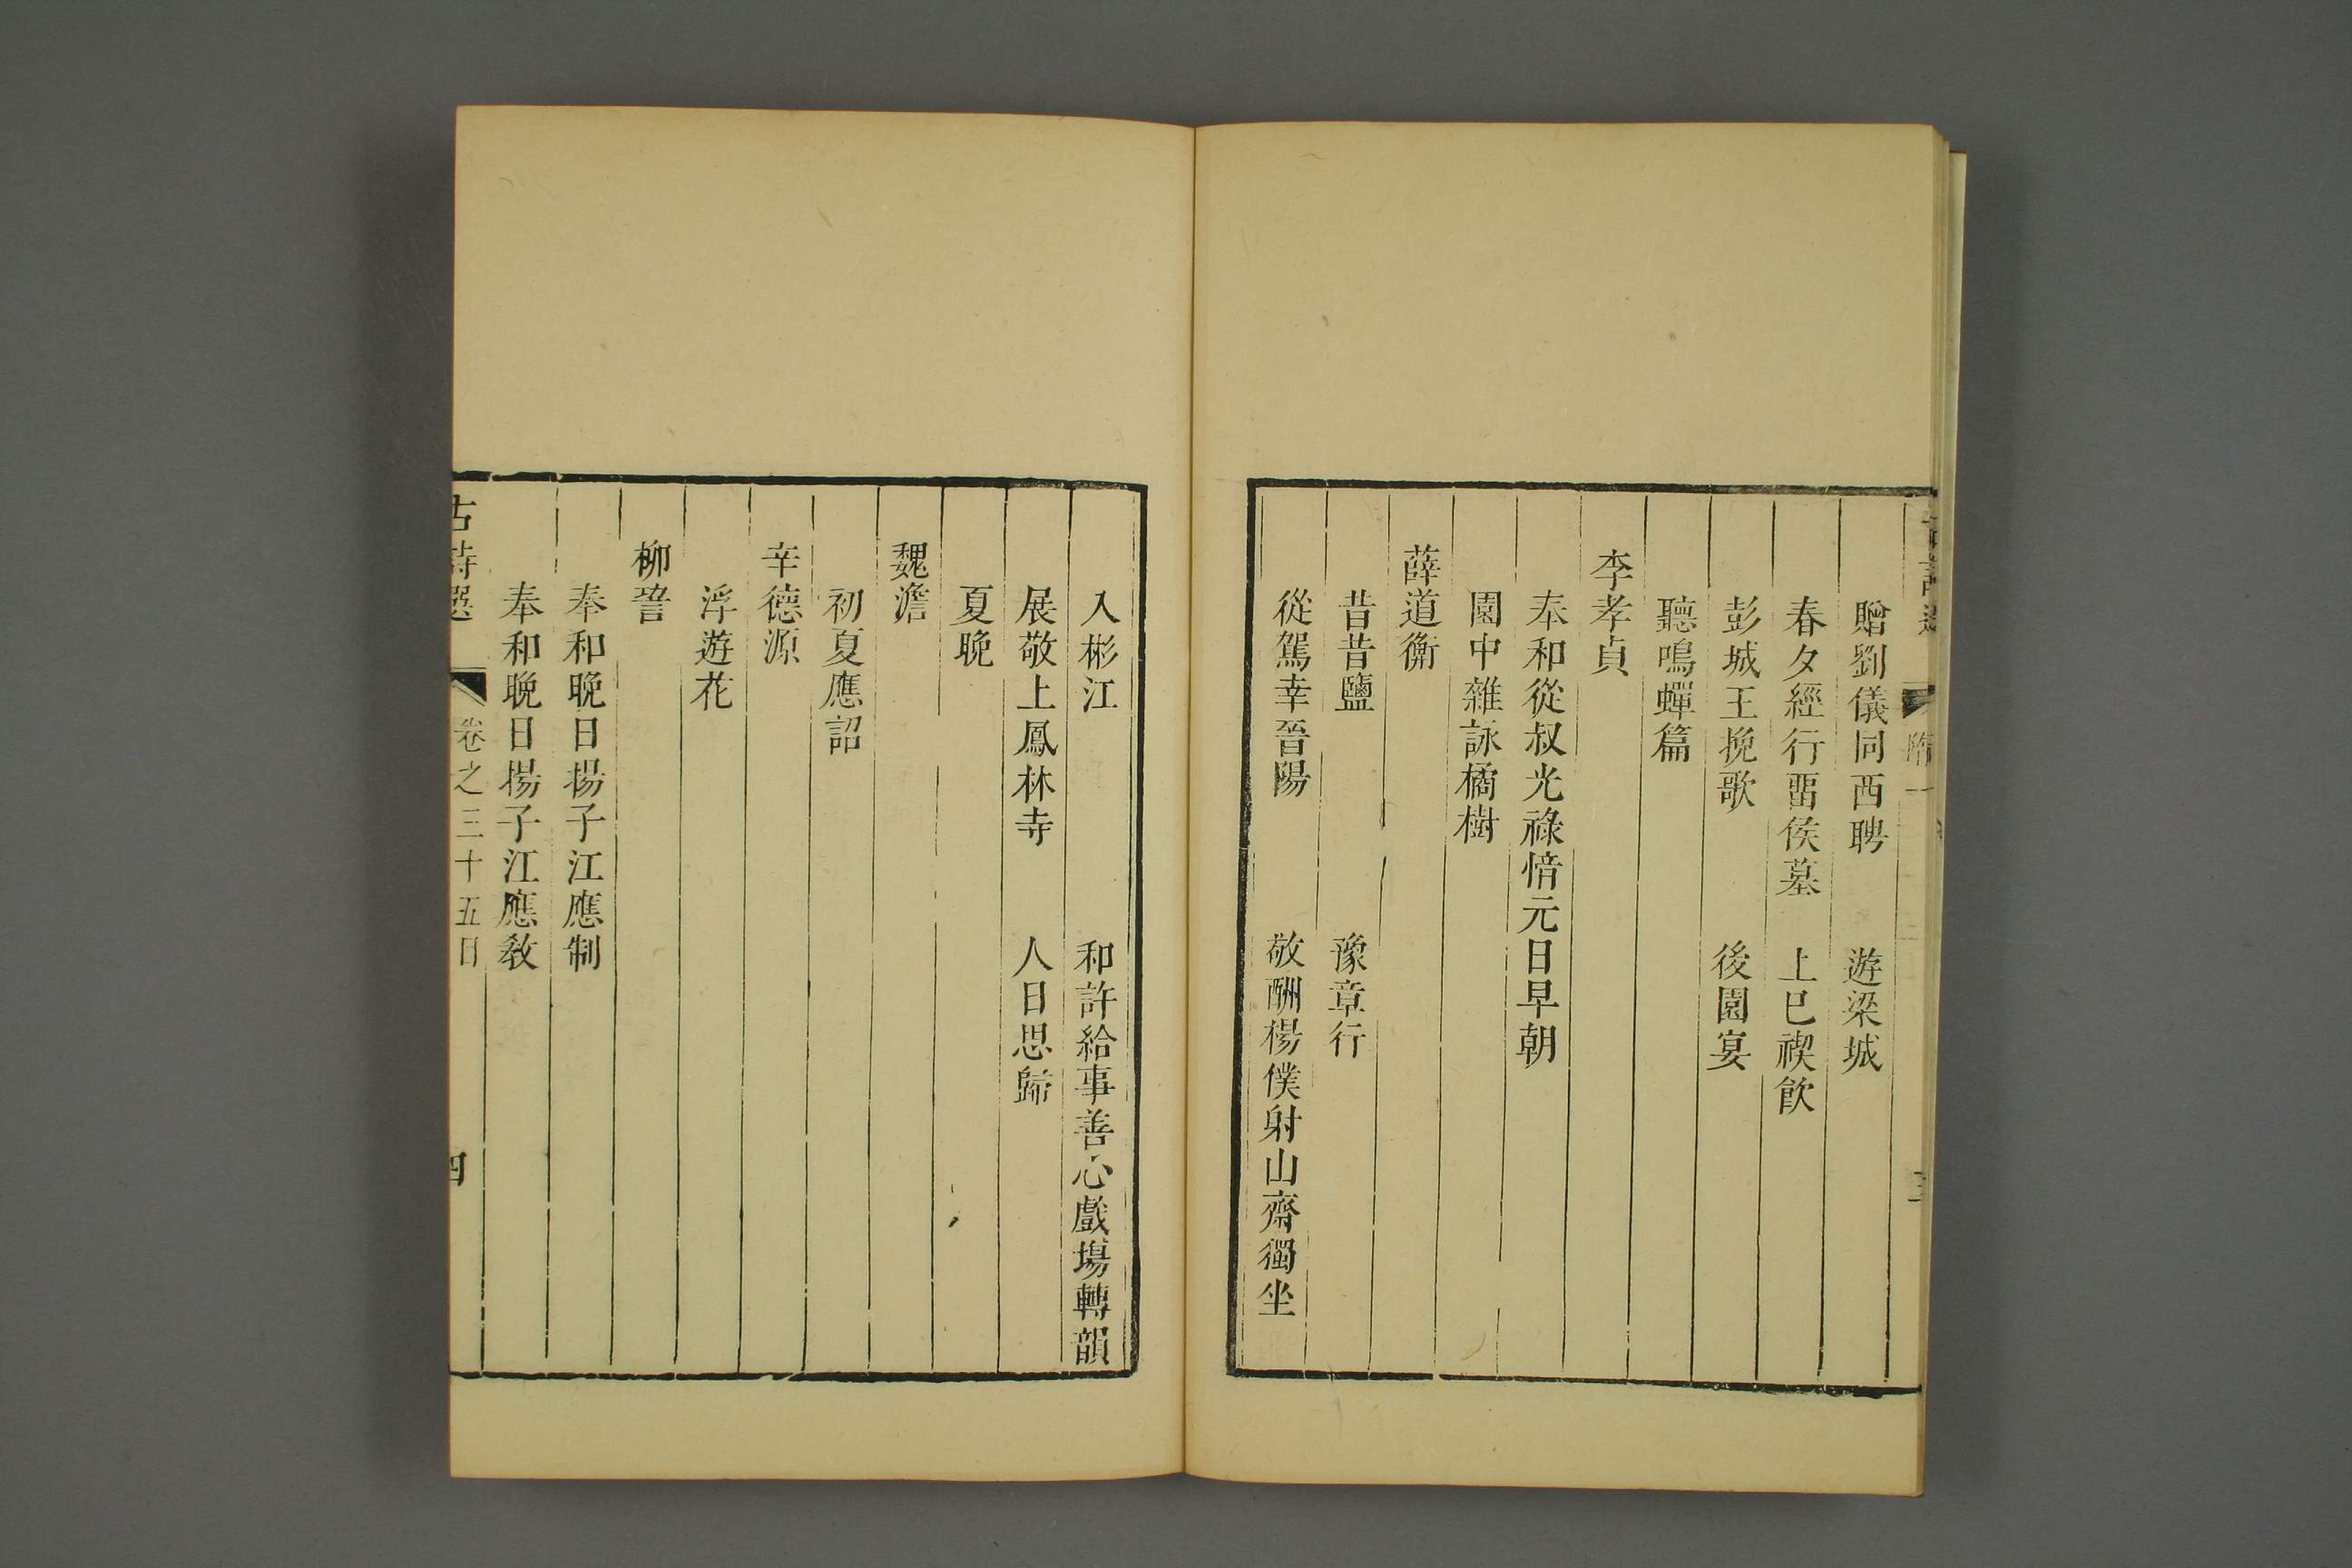 贈劉儀同西聘 遊梁城
春夕經行畱侯墓 上巳禊飮
彭城王挽歌 後園宴
聽鳴蟬篇
李孝貞
奉和從叔光祿愔元日早朝
園中雜詠橘樹
薛道衡
昔昔鹽 豫章行
從駕幸晉陽 敬酬楊僕射山齋獨坐
入彬江 和許給事善心戲塲轉韻
展敬上鳳林寺 人日思歸
夏晚
魏澹
初夏應詔
辛德源
浮遊花
柳䛒
奉和晚日揚子江應制
奉和晚日揚子江應敎
古詩選 卷之三十五目 四